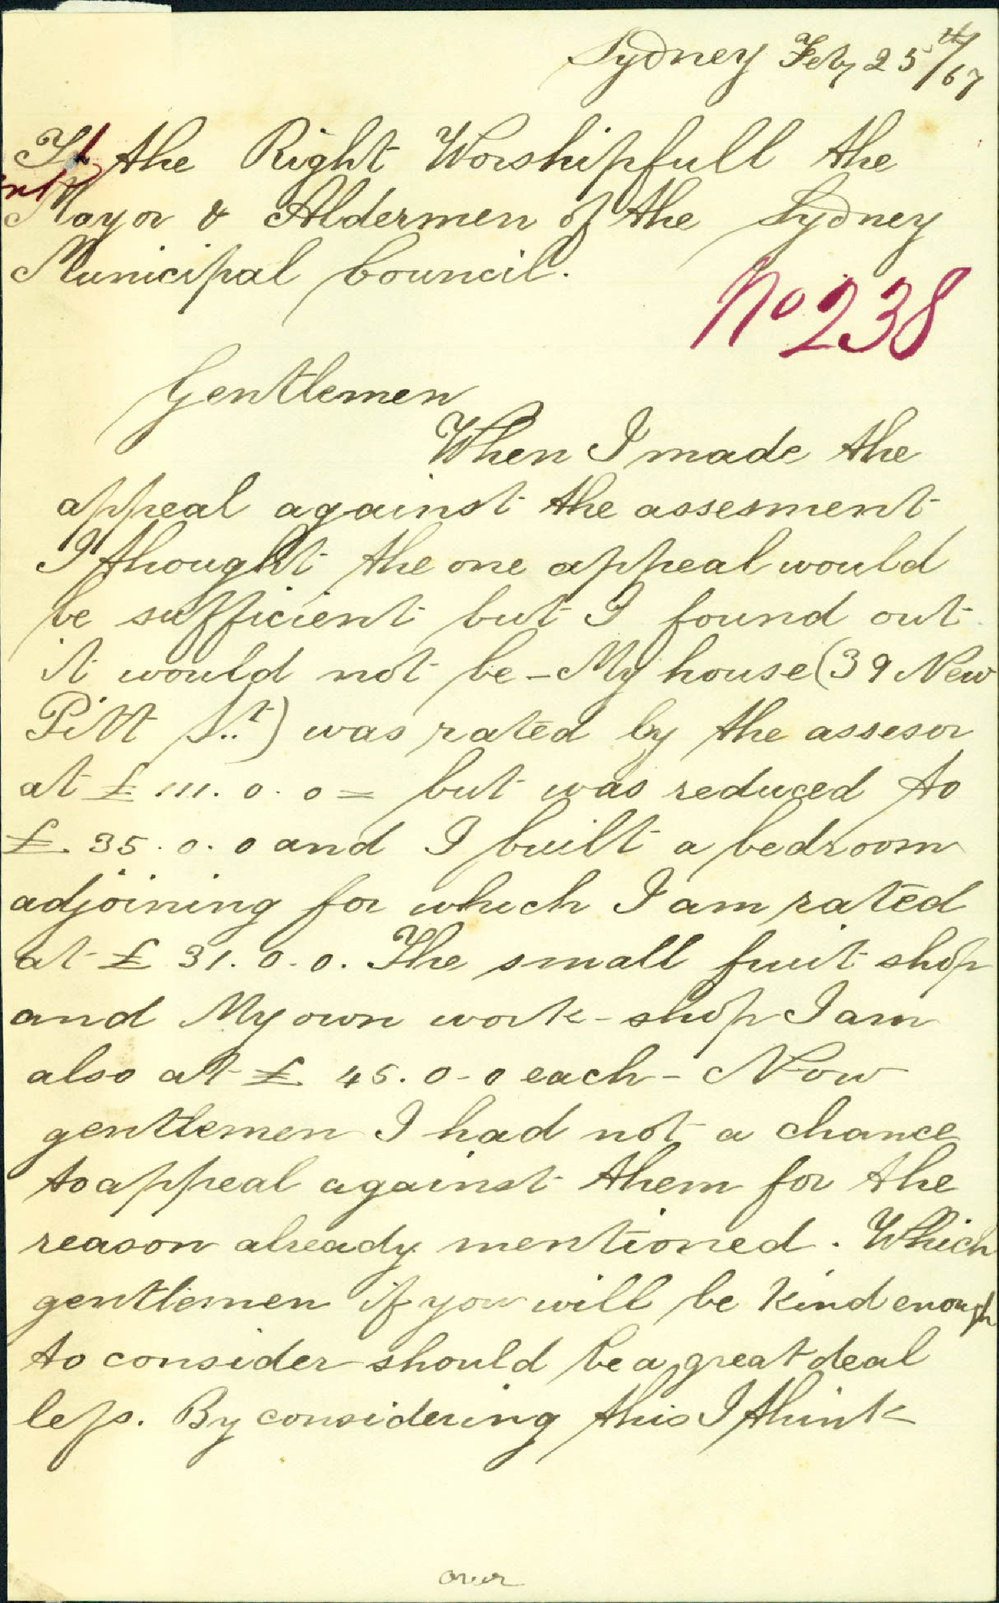 Sydney Feby 25th/67
To the Right Worshipfull the
Mayor & Aldermen of the Sydney
Municipal Council.
No 238
Gentlemen
When I made the
appeal against the assesment
I thought the one appeal would
be sufficient but I found out
it would not be - My house (39 New
Pitt St) was rated by the assesor
at £111. 0. 0 = but was reduced to
£. 35. 0. 0 and I built a bedroom
adjoining for which I am rated
at £ 31. 0. 0. The small fruit shop
and My own work-shop I am
also at £ 45. 0-0 each - Now
gentlemen I had not a chance
to appeal against them for the
reason already mentioned. Which
gentlemen if you will be kind enough
to consider should be a great deal
less. By considering this I think
over